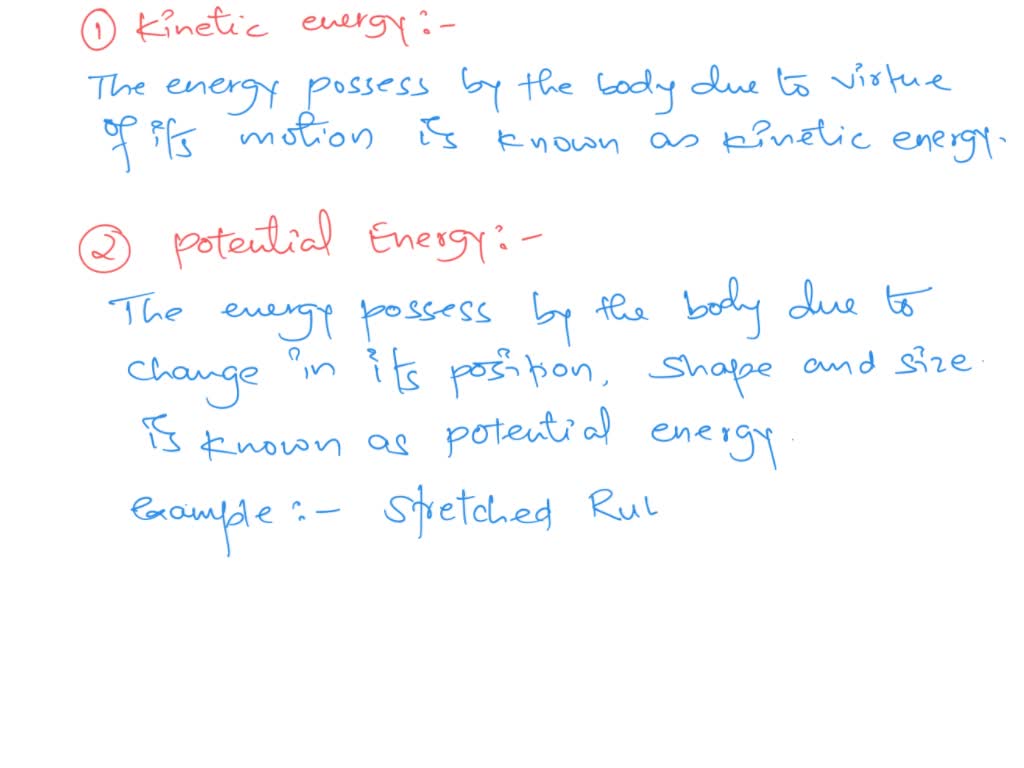 ① Kinetic energy:-
The energy possess by the body due to virtue
of its motion is known as kinetic energy.
② Potential Energy:-
The energy possess by the body due to
change in its position, shape and size
is known as potential energy.
Example:- Stretched Rul